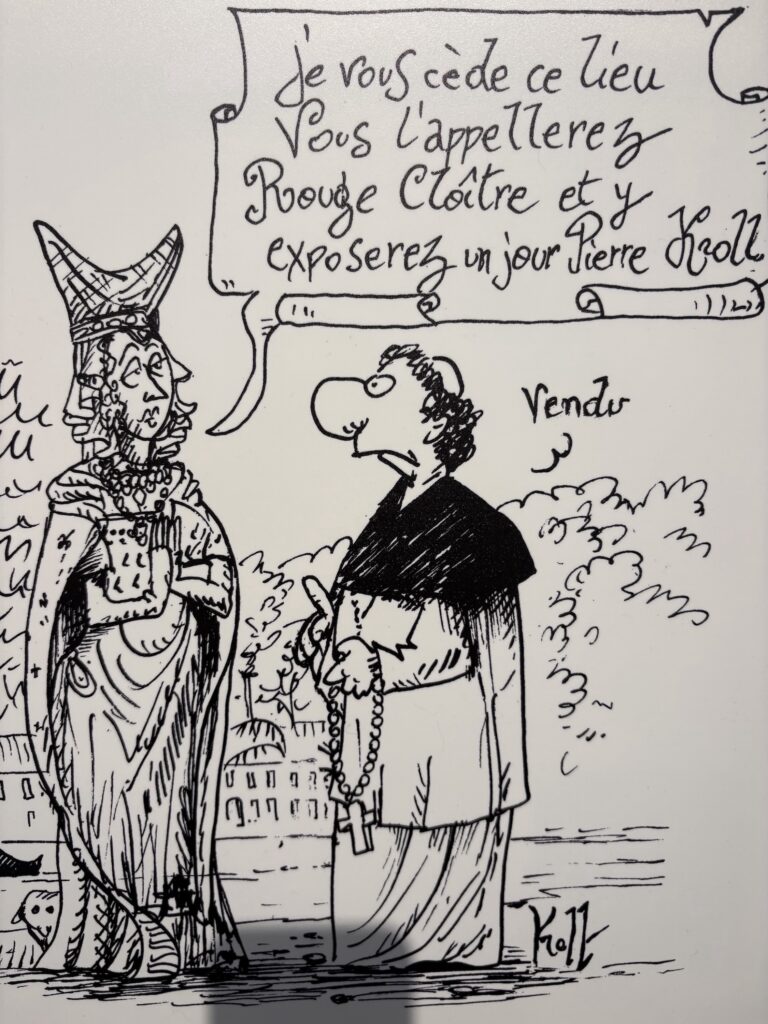 Je vous cède ce lieu
Vous l'appellerez
Rouge Cloître et y
exposerez un jour Pierre Kroll
Vendu
Kroll